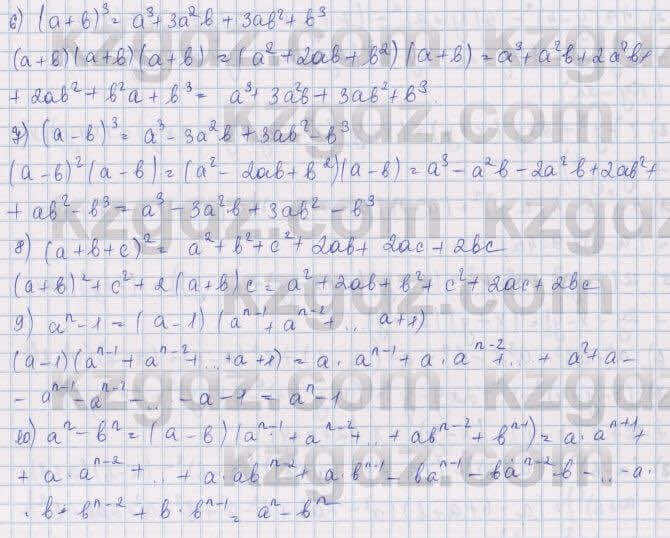 6) (a+b)³ = a³+3a²b+3ab²+b³
(a+b)(a+b)(a+b) = (a²+2ab+b²)(a+b) = a³+a²b+2a²b+
+2ab²+b²a+b³ = a³+3a²b+3ab²+b³.
7) (a-b)³ = a³-3a²b+3ab²-b³
(a-b)²(a-b) = (a²-2ab+b²)(a-b) = a³-a²b-2a²b+2ab²+
+ab²-b³ = a³-3a²b+3ab²-b³
8) (a+b+c)² = a²+b²+c²+2ab+2ac+2bc
(a+b)²+c²+2(a+b)c = a²+2ab+b²+c²+2ac+2bc
9) aⁿ-1 = (a-1)(aⁿ⁻¹+aⁿ⁻²+... a+1)
(a-1)(aⁿ⁻¹+aⁿ⁻²+...+a+1) = a·aⁿ⁻¹+a·aⁿ⁻²+...+a²+a-
-aⁿ⁻¹-aⁿ⁻²-...-a-1 = aⁿ-1
10) aⁿ-bⁿ = (a-b)(aⁿ⁻¹+aⁿ⁻²+...+abⁿ⁻²+bⁿ⁻¹) = a·aⁿ⁺¹+
+a·aⁿ⁻²+...+a·abⁿ⁻²+a·bⁿ⁻¹-baⁿ⁻¹-baⁿ⁻²·b-...-a·
·b·bⁿ⁻²+b·bⁿ⁻¹ = aⁿ-bⁿ
kzgdz.com